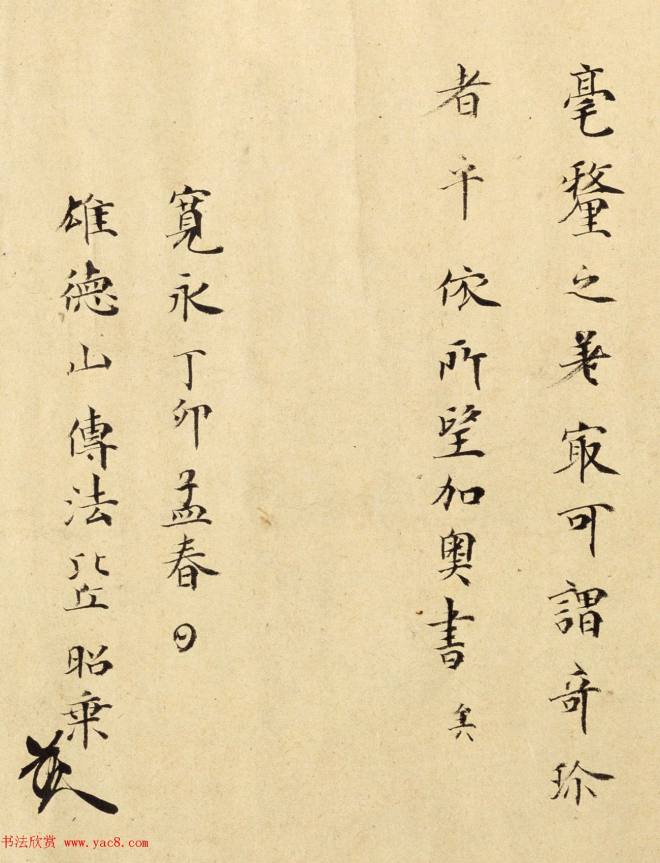 毫釐之差㝡可謂奇珎
者乎依所望加奥書矣
寛永丁卯孟春日
雄徳山傳法比丘昭乗
书法欣赏 www.yac8.com